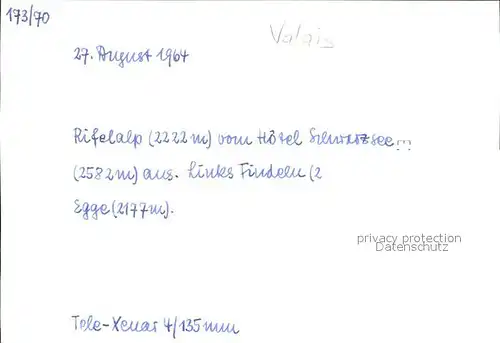 173/70
Valais
27. August 1964
Rifelalp (2222m) vom Hôtel Schwarzsee
(2582m) aus. Links Findeln (2
Egge (2177m).
privacy protection
Datenschutz
Tele-Xenar 4/135mm